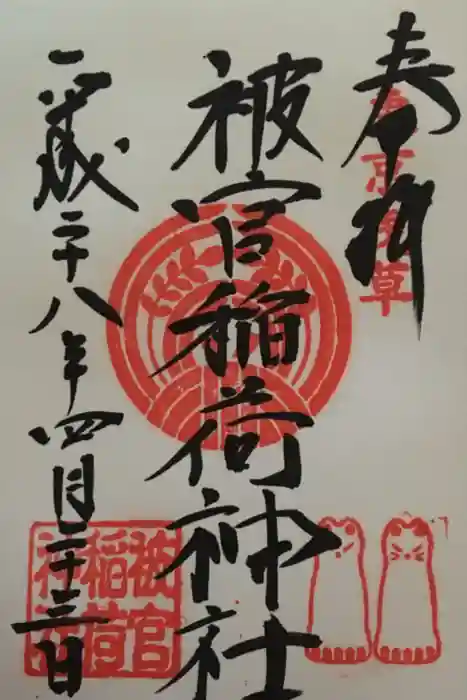 奉拝
東京浅草
被官稲荷神社
平成二十八年四月二十三日
被官
稲荷
神社